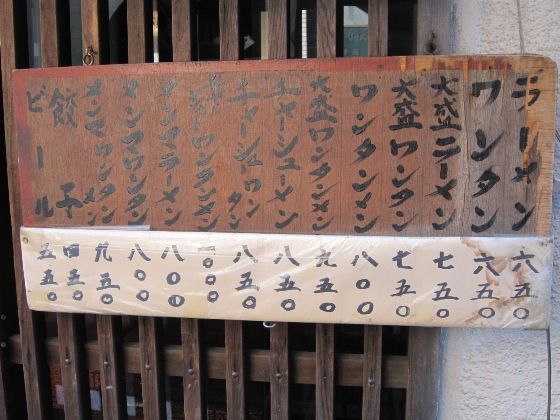 ラーメン 六五〇
ワンタン 六五〇
大盛ラーメン 七五〇
大盛ワンタン 七五〇
ワンタンメン 八〇〇
大盛ワンタンメン 九五〇
チャーシューメン 八五〇
チャーシュワンタン 八五〇
ワンタンメン 一〇〇〇
メンマラーメン 八〇〇
メンマワンタン 八〇〇
メンマワンタンメン 九五〇
餃子 四五〇
ビール 五五〇